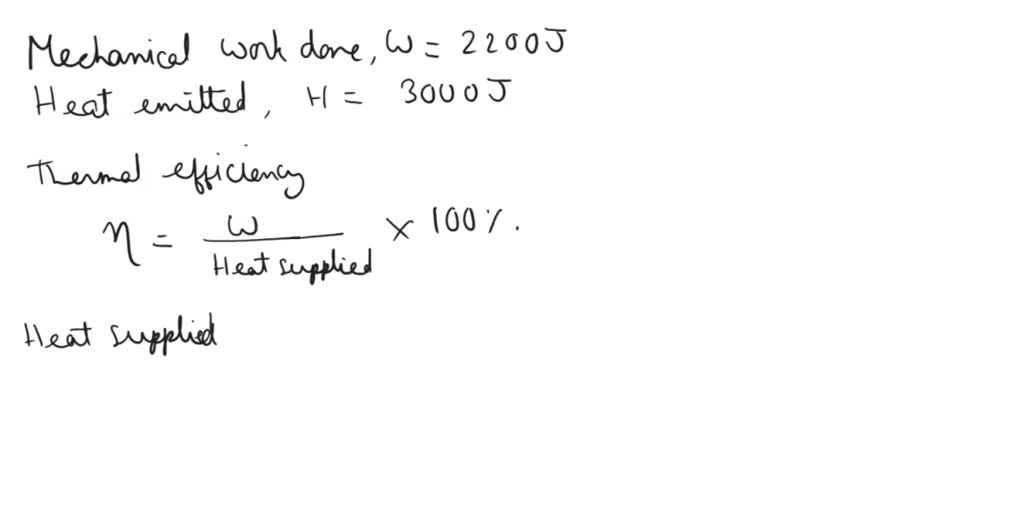 Mechanical work done, W = 2200J
Heat emitted, H = 3000J
Thermal efficiency
η = W / Heat supplied × 100%.
Heat supplied